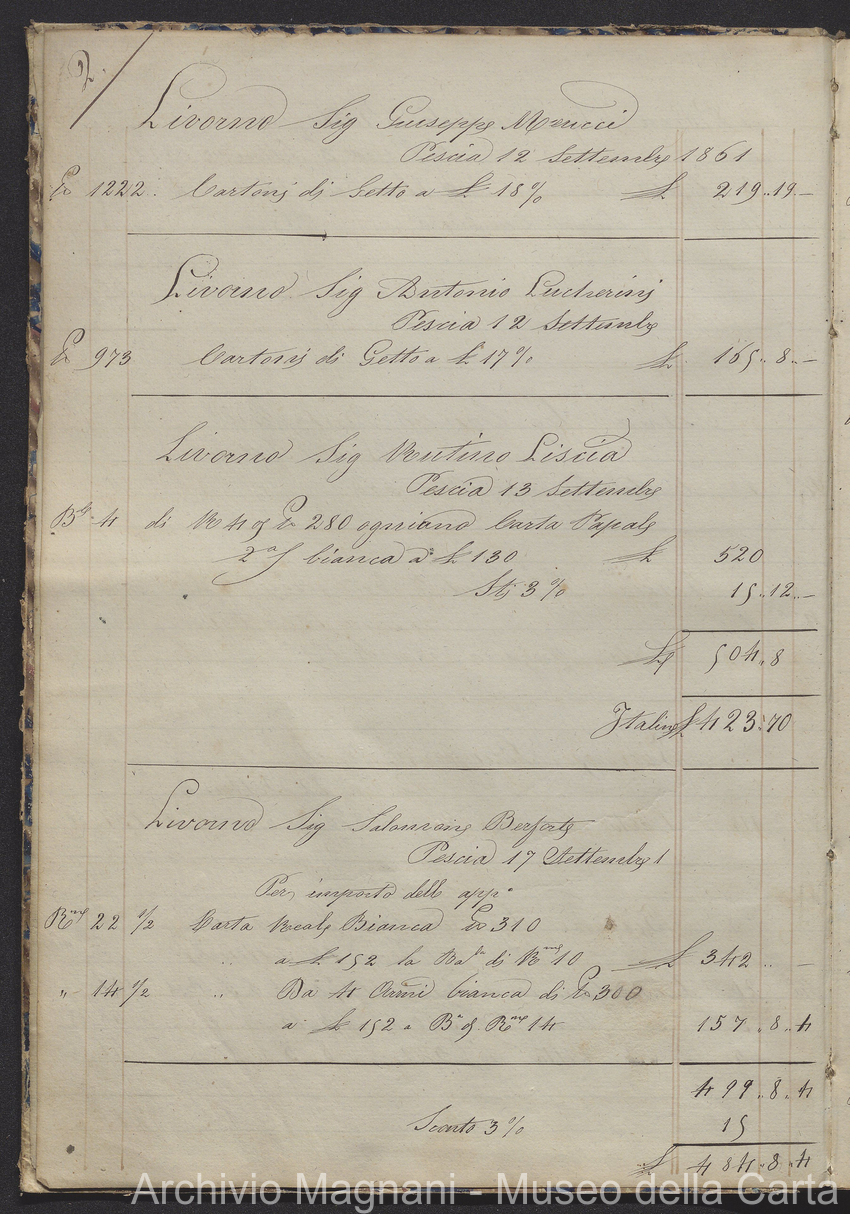 2.
Livorno Sig Giuseppe Meucci
Pescia 12 Settembre 1861
lb 1222. Cartoni di Getto a £ 18% £ 219..19..—
Livorno Sig Antonio Lucherini
Pescia 12 Settembre
lb 973 Cartoni di Getto a £ 17% £ 165..8..—
Livorno Sig Liscia
Pescia 13 Settembre
Ble 4 di R 4 lb 280 ogniuna Carta Papale
2a bianca a £ 130 £ 520
Sto 3% 15..12..—
£ 504..8
Italiane £ 423:70
Livorno Sig Salomone Berforte
Pescia 17 Settembre
Per importo delle appo
Rme 22 1/2 Carta Reale Bianca lb 310
a £ 152 la Balla di Rme 10 £ 342 .. —
„ 14 1/2 „ Da 4 Armi bianca di lb 300
a £ 152 a Ba Rme 14 157..8..4
499..8..4
Sconto 3% 15
£ 484..8..4
Archivio Magnani - Museo della Carta